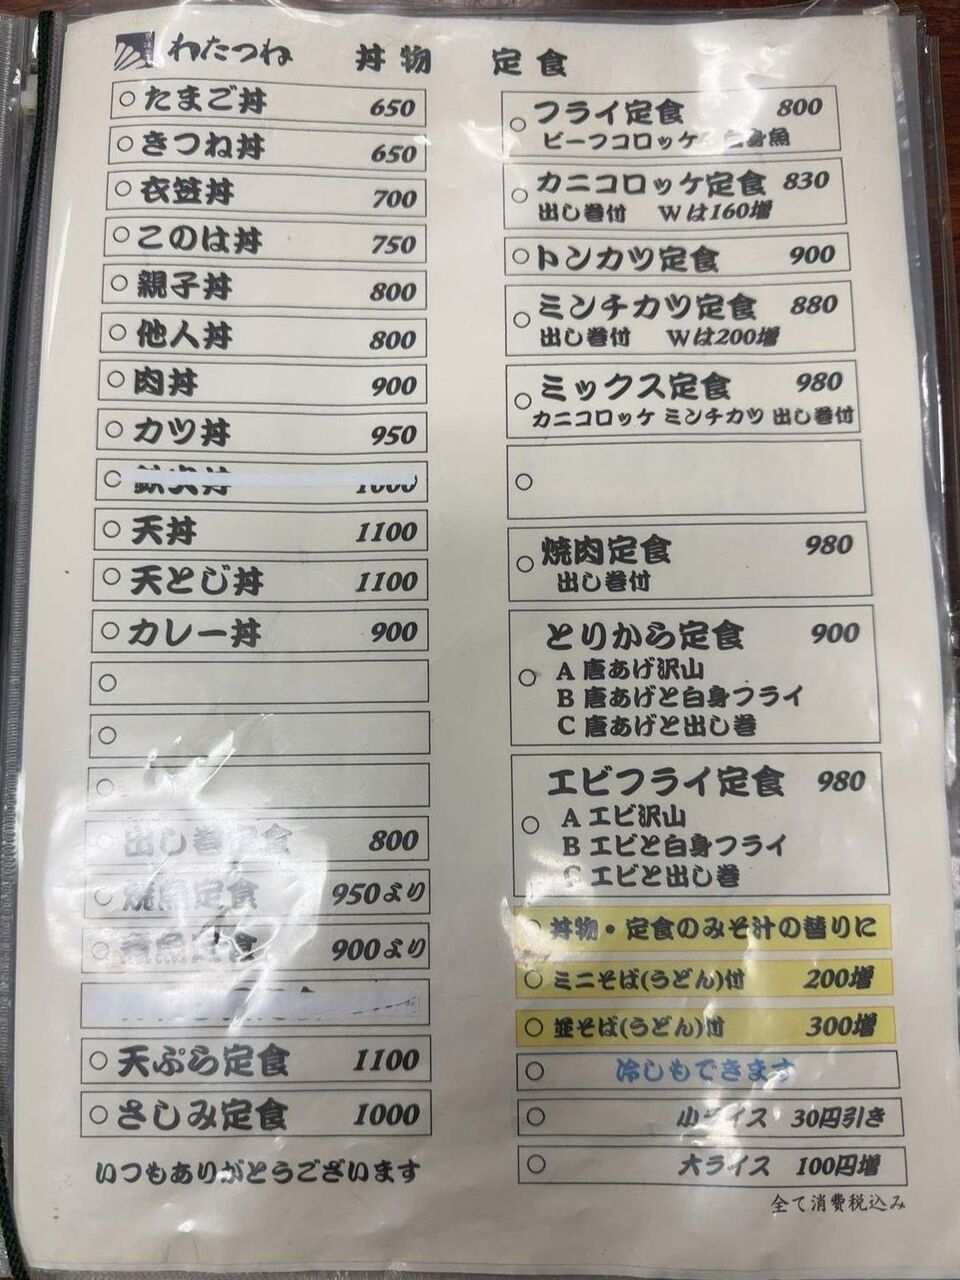 わたつね 丼物 定食
○ たまご丼 650
○ きつね丼 650
○ 衣笠丼 700
○ このは丼 750
○ 親子丼 800
○ 他人丼 800
○ 肉丼 900
○ カツ丼 950
○ 鉄火丼 1000
○ 天丼 1100
○ 天とじ丼 1100
○ カレー丼 900
○
○
○
出し巻定食 800
焼魚定食 950より
定食 900より
○ 天ぷら定食 1100
○ さしみ定食 1000
いつもありがとうございます
○ フライ定食 800
ビーフコロッケ 白身魚
○ カニコロッケ定食 830
出し巻付 Wは160増
○ トンカツ定食 900
○ ミンチカツ定食 880
出し巻付 Wは200増
○ ミックス定食 980
カニコロッケ ミンチカツ 出し巻付
○
○ 焼肉定食 980
出し巻付
○ とりから定食 900
A 唐あげ沢山
B 唐あげと白身フライ
C 唐あげと出し巻
○ エビフライ定食 980
A エビ沢山
B エビと白身フライ
C エビと出し巻
○ 丼物・定食のみそ汁の替りに
○ ミニそば(うどん)付 200増
○ 並そば(うどん)付 300増
○ 冷しもできます
○ 小ライス 30円引き
○ 大ライス 100円増
全て消費税込み